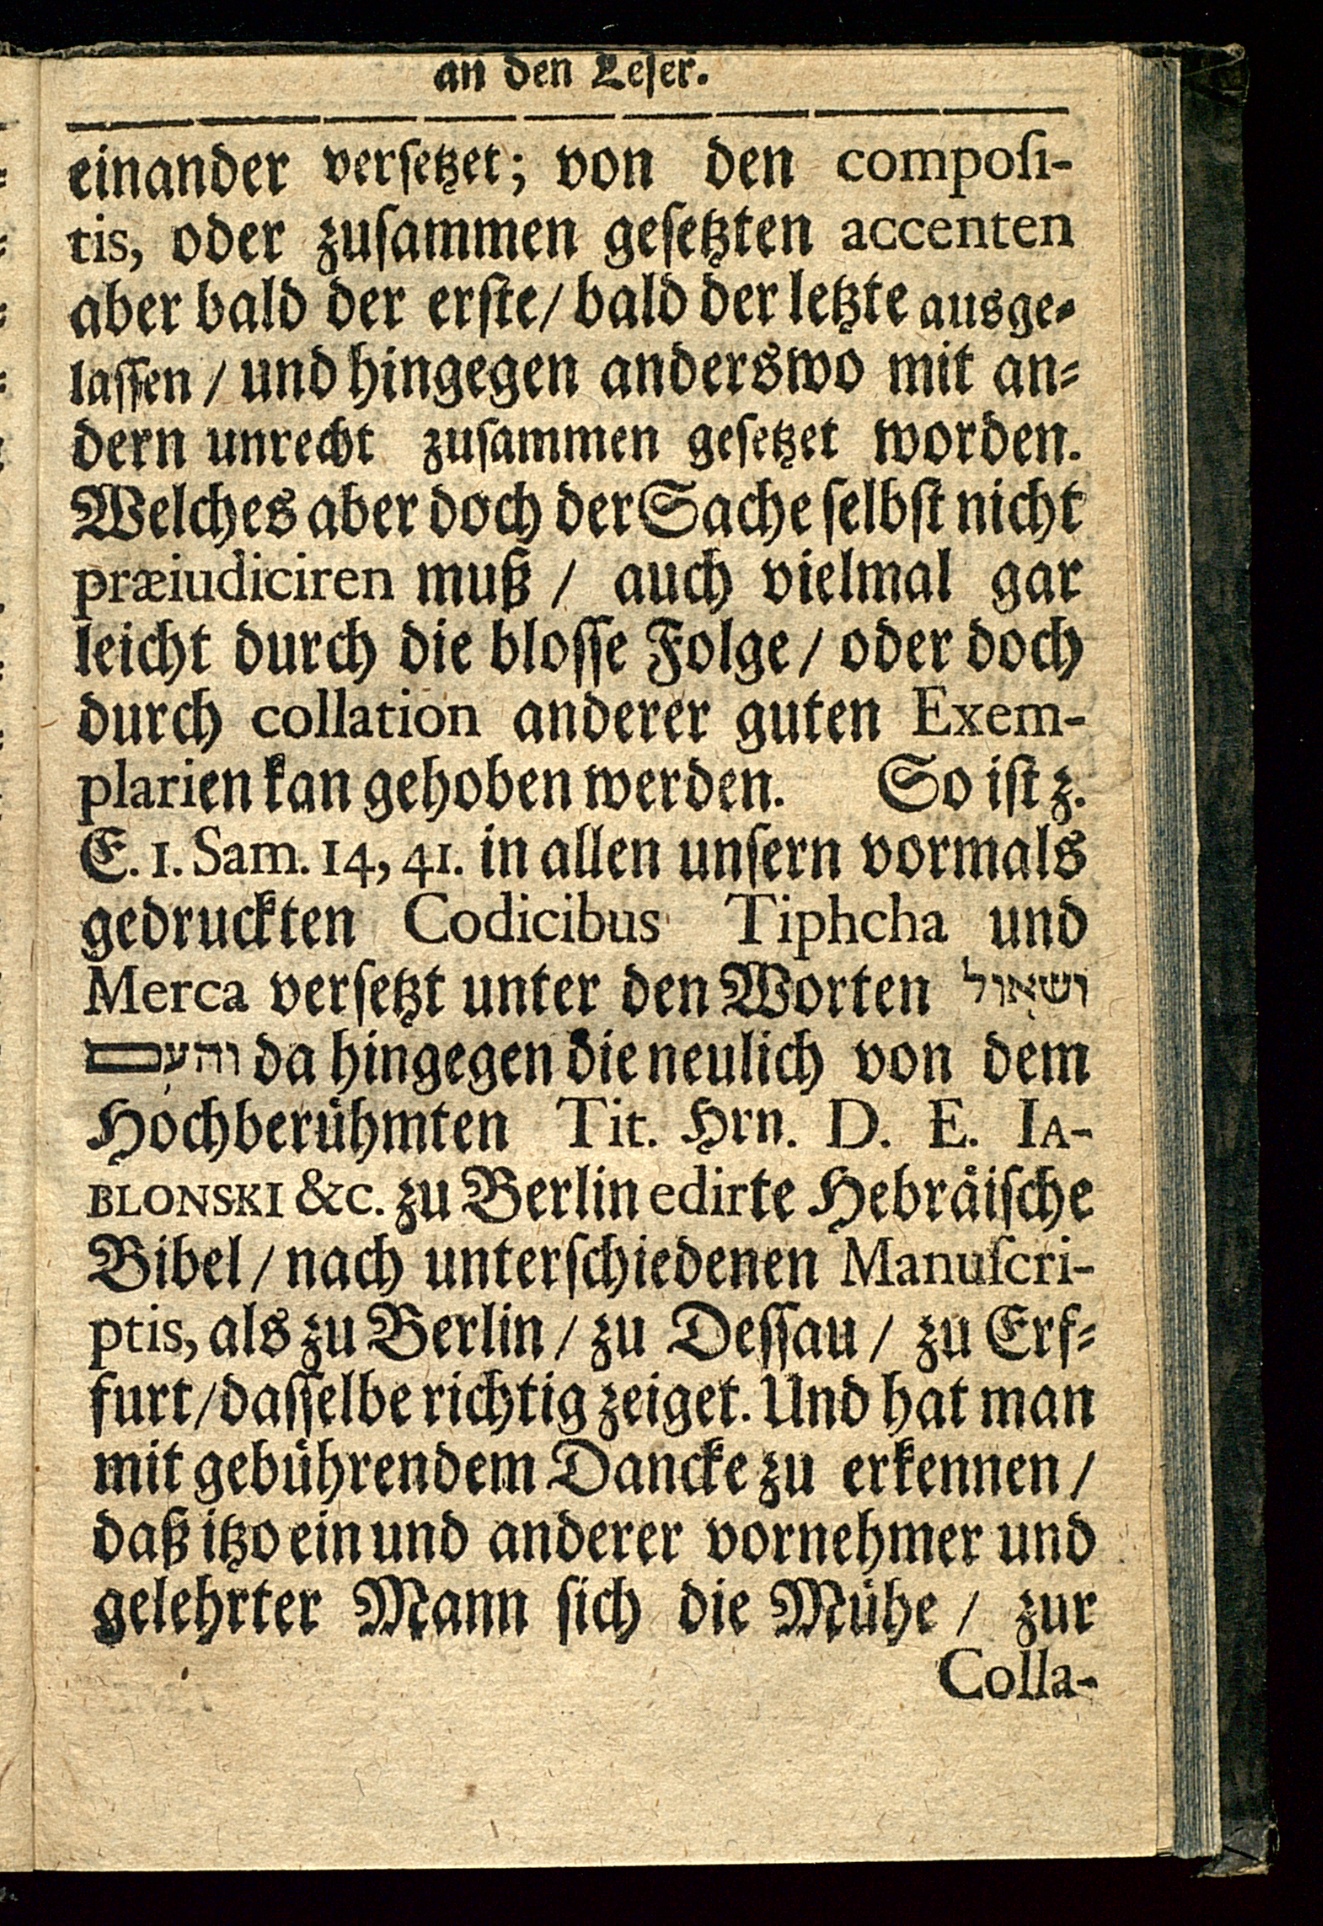 an den Leſer.
einander verſetzet; von den compoſi-
tis, oder zuſammen geſetzten accenten
aber bald der erſte/ bald der letzte ausge-
laſſen / und hingegen anderswo mit an-
dern unrecht zuſammen geſetzet worden.
Welches aber doch der Sache ſelbſt nicht
præiudiciren muß / auch vielmal gar
leicht durch die bloſſe Folge/ oder doch
durch collation anderer guten Exem-
plarien kan gehoben werden. So iſt z.
E. 1. Sam. 14, 41. in allen unſern vormals
gedruckten Codicibus Tiphcha und
Merca verſetzt unter den Worten ושא֥ול
והע֖ם da hingegen die neulich von dem
Hochberuͤhmten Tit. Hrn. D. E. IA-
BLONSKI &c. zu Berlin edirte Hebraͤiſche
Bibel/ nach unterſchiedenen Manuſcri-
ptis, als zu Berlin/ zu Deſſau/ zu Erf-
furt/daſſelbe richtig zeiget. Und hat man
mit gebuͤhrendem Dancke zu erkennen/
daß itzo ein und anderer vornehmer und
gelehrter Mann ſich die Muͤhe/ zur
Colla-